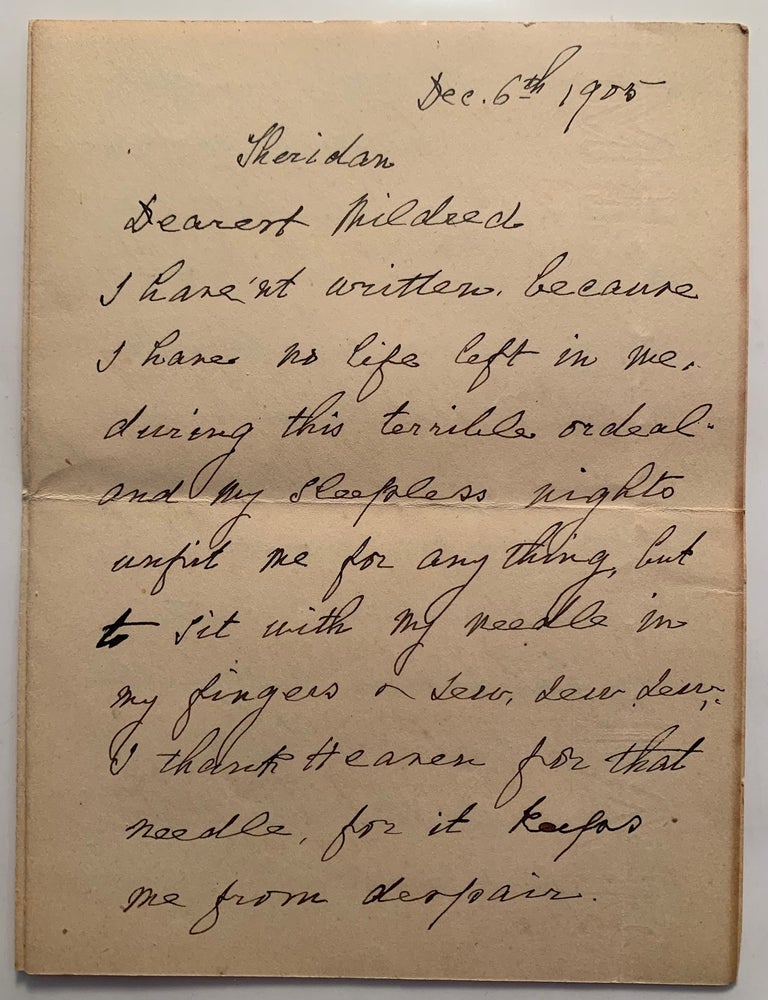 Dec. 6th 1905
Sheridan
Dearest Mildred
I have'nt written, because
I have no life left in me,
during this terrible ordeal -
and my sleepless nights
unfit me for any thing, but
to sit with my needle in
my fingers & sew, sew, sew,
I thank Heaven for that
needle, for it keeps
me from despair.